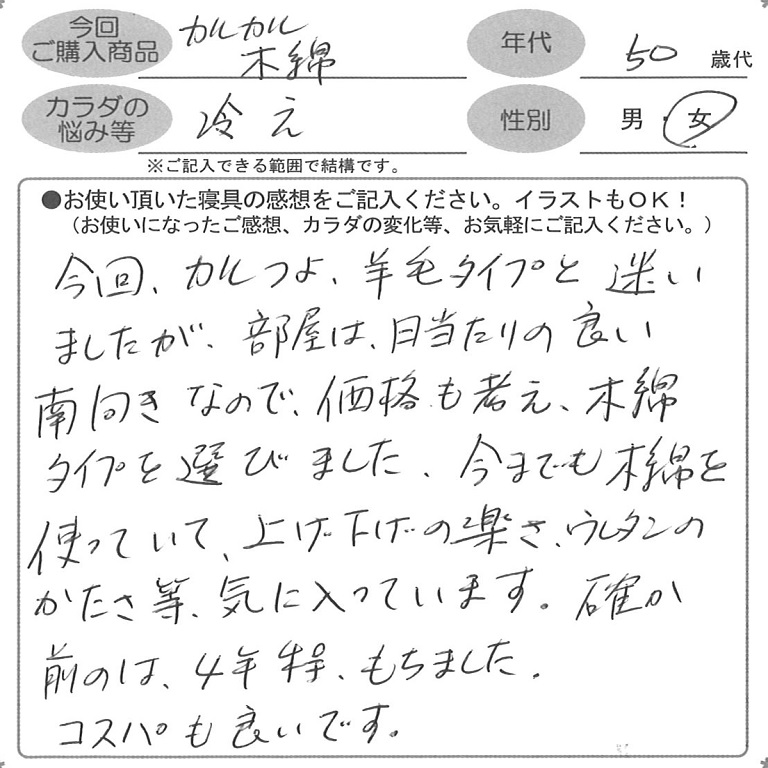 今回
ご購入商品
カルカル
木綿
年代
50 歳代
カラダの
悩み等
冷え
性別
男・女
※ご記入できる範囲で結構です。
●お使い頂いた寝具の感想をご記入ください。イラストもOK!
(お使いになったご感想、カラダの変化等、お気軽にご記入ください。)
今回、カルつよ、羊毛タイプと迷い
ましたが、部屋は、日当たりの良い
南向きなので、価格も考え、木綿
タイプを選びました、今までも木綿を
使っていて、上げ下げの楽さ、ウレタンの
かたさ等、気に入っています。確か
前のは、4年半、もちました。
コスパも良いです。